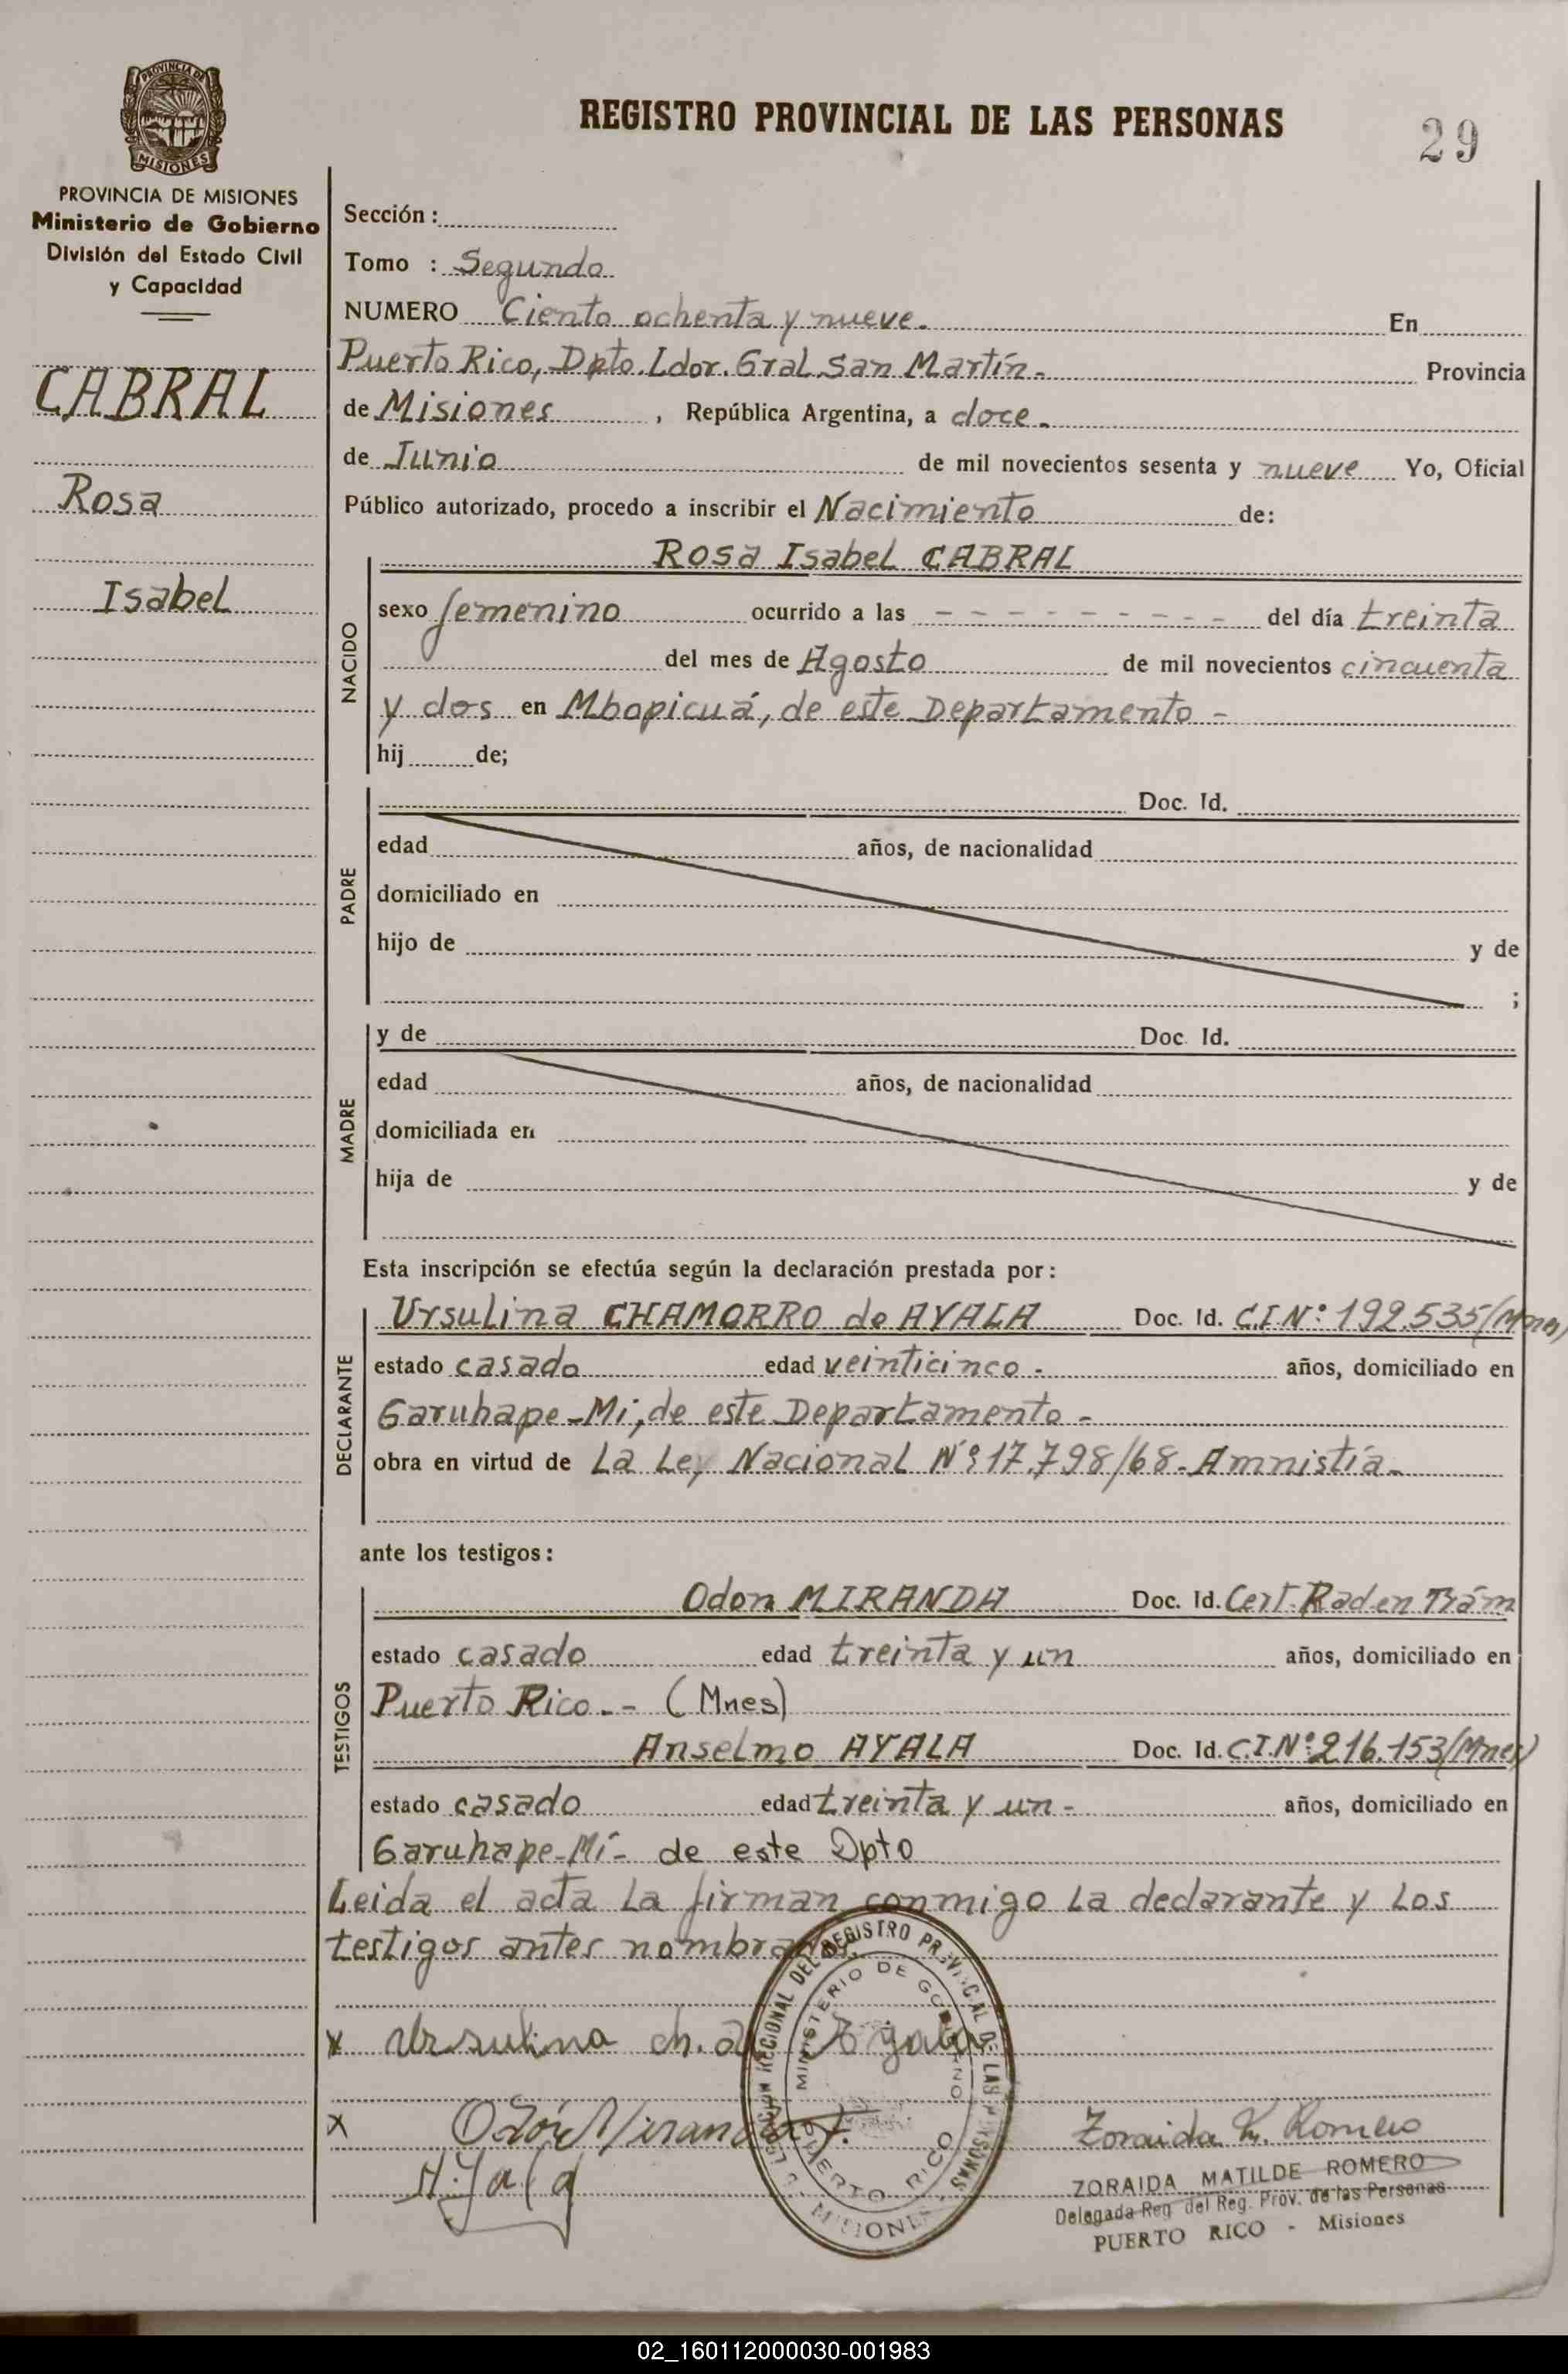 REGISTRO PROVINCIAL DE LAS PERSONAS
29
PROVINCIA DE MISIONES
PROVINCIA DE MISIONES
Ministerio de Gobierno
División del Estado Civil
y Capacidad
CABRAL
Rosa
Isabel
Sección :
Tomo : Segundo
NUMERO Ciento ochenta y nueve. En
Puerto Rico, Dpto. Ldor. Gral. San Martín - Provincia
de Misiones , República Argentina, a doce.
de Junio de mil novecientos sesenta y nueve Yo, Oficial
Público autorizado, procedo a inscribir el Nacimiento de:
NACIDO
Rosa Isabel CABRAL
sexo femenino ocurrido a las - - - - - - - - - del día treinta
del mes de Agosto de mil novecientos cincuenta
y dos en Mbopicuá, de este Departamento -
hij de;
PADRE
Doc. Id.
edad años, de nacionalidad
domiciliado en
hijo de y de
;
MADRE
y de Doc. Id.
edad años, de nacionalidad
domiciliada en
hija de y de
Esta inscripción se efectúa según la declaración prestada por:
DECLARANTE
Ursulina CHAMORRO de AYALA Doc. Id. C.I.Nº: 192.535/(Mnes)
estado casado edad veinticinco - años, domiciliado en
Garuhape-Mi, de este Departamento -
obra en virtud de La Ley Nacional Nº: 17.798/68- Amnistía-
ante los testigos:
TESTIGOS
Odon MIRANDA Doc. Id. Cert. Rad en Trám
estado casado edad treinta y un años, domiciliado en
Puerto Rico.- (Mnes)
Anselmo AYALA Doc. Id. C.I.Nº: 216.153/(Mnes)
estado casado edad treinta y un - años, domiciliado en
Garuhape-Mí- de este Dpto
Leida el acta La firman conmigo La declarante y Los
testigos antes nombrados.
x Ursulina ch. de Ayala
x Odón Miranda
A. Yala
REGIONAL DEL REGISTRO PROVINCIAL DE LAS PERSONAS
MINISTERIO DE GOBIERNO
PUERTO RICO
MISIONES
Zoraida M. Romero
ZORAIDA MATILDE ROMERO
Delegada Reg. del Reg. Prov. de las Personas
PUERTO RICO - Misiones
02_160112000030-001983